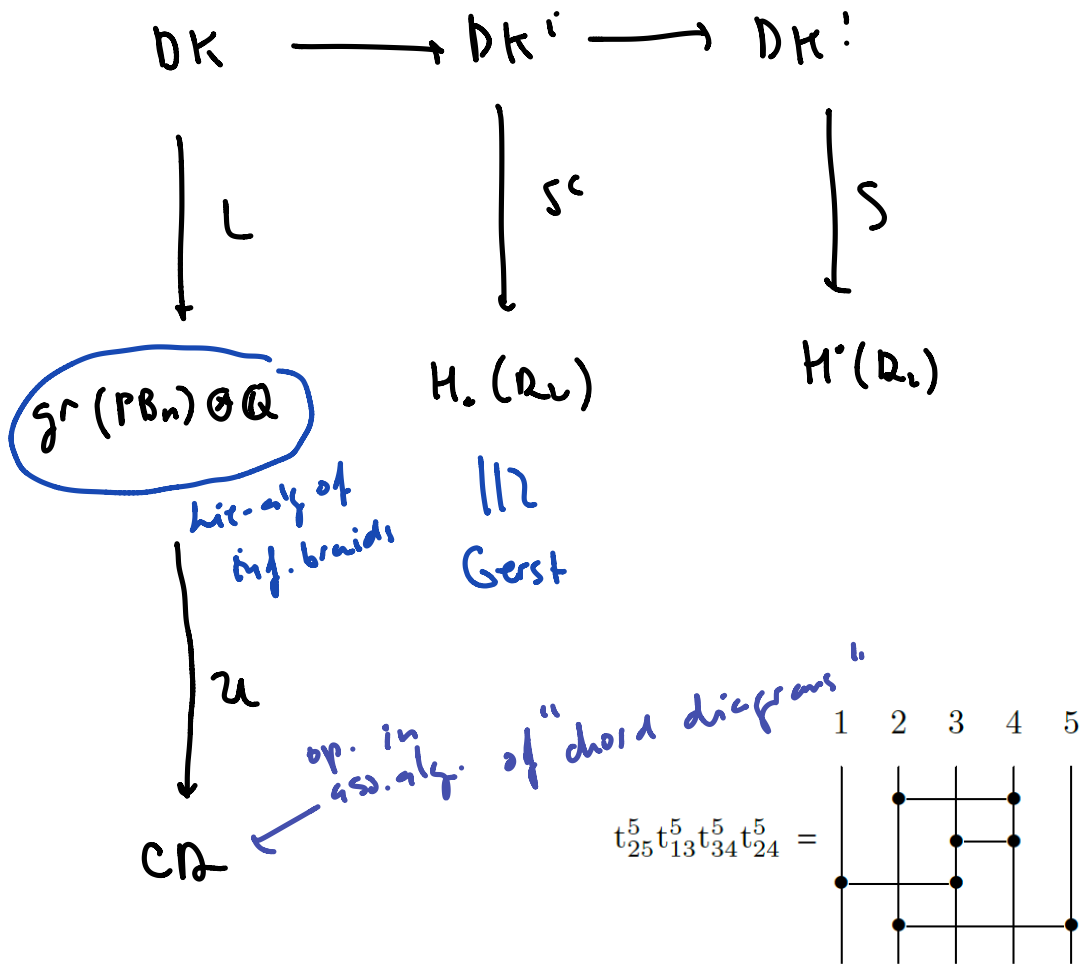 DK → DK¡ → DK!
L
Sᶜ
S
gr (PBₙ) ⊗ Q
H. (D₂)
H˙(D₂)
Lie-alg of
inf. braids
Gerst
U
op. in
ass. alg. of "chord diagrams"
CD
1 2 3 4 5
t⁵₂₅t⁵₁₃t⁵₃₄t⁵₂₄ =